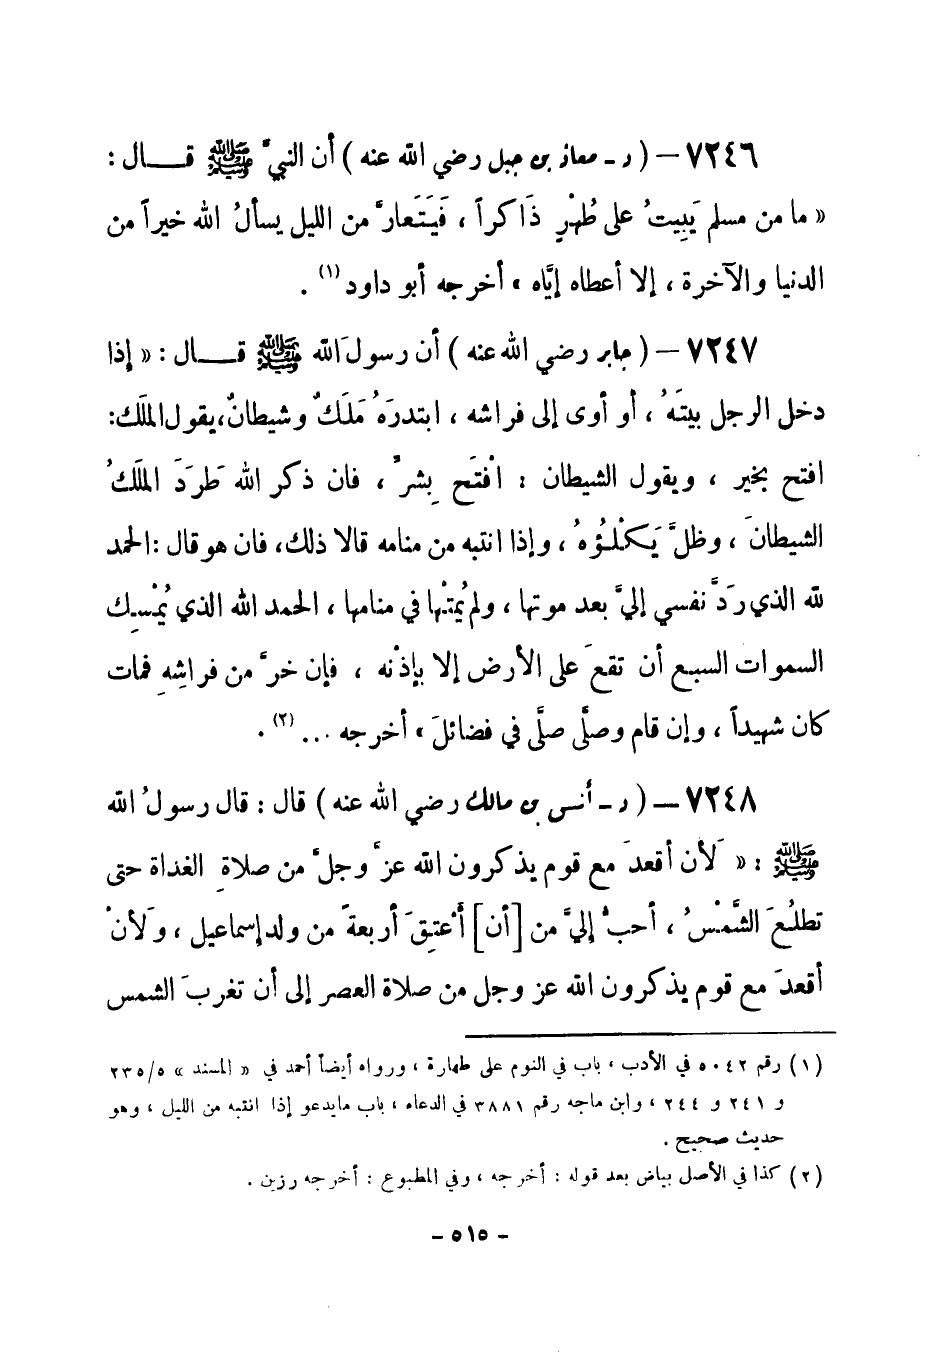 ٧٢٤٦ – ( د - معاذ بن جبل رضي الله عنه ) أن النبيَّ ﷺ قـــال :
« ما من مسلم يَبِيتُ على طُهْرٍ ذَاكراً ، فَيَتَعارَّ من الليل يسألُ الله خيراً من
الدنيا والآخرة ، إلا أعطاه إيَّاه » أخرجه أبو داود (١) .
٧٢٤٧ – ( جابر رضي الله عنه ) أن رسولَ الله ﷺ قـــال : « إذا
دخل الرجل بيتَهُ ، أو أوى إلى فراشه ، ابتدرَهُ مَلَكٌ وشيطانٌ، يقول الملَك:
افتح بخير ، ويقول الشيطان : افْتَح بِشرٍّ ، فان ذكر الله طَرَدَ الملَكُ
الشيطانَ ، وظلَّ يَكْلَؤُهُ ، وإذا انتبه من منامه قالا ذلك، فان هو قال : الحمد
لله الذي ردَّ نفسي إليَّ بعد موتها ، ولم يُمتْها في منامها ، الحمد الله الذي يُمْسِك
السموات السبع أن تقعَ على الأرض إلا بإذْنه ، فإن خرَّ من فراشِهِ فمات
كان شهيداً ، وإن قام وصلَّى صلَّى في فضائلَ » أخرجه ... (٢) .
٧٢٤٨ – ( د - أنس بن مالك رضي الله عنه ) قال : قال رسولُ الله
ﷺ : « لَأن أقعدَ مع قوم يذكرون الله عزَّ وجلَّ من صلاةِ الغداة حتى
تطلُعَ الشَّمْسُ ، أحبُّ إليَّ من [أن] أُعتِقَ أربعةً من ولد إسماعيل ، ولَأنْ
أقعدَ مع قوم يذكرون الله عز وجل من صلاة العصر إلى أن تغربَ الشمس
(١) رقم ٥٠٤٢ في الأدب ، باب في النوم على طهارة ، ورواه أيضاً أحمد في « المسند » ٢٣٥/٥
و ٢٤١ و ٢٤٤ ، وابن ماجه رقم ٣٨٨١ في الدعاء ، باب مايدعو إذا انتبه من الليل ، وهو
حديث صحيح .
(٢) كذا في الأصل بياض بعد قوله : أخرجه ، وفي المطبوع : أخرجه رزين .
- ٥١٥ -